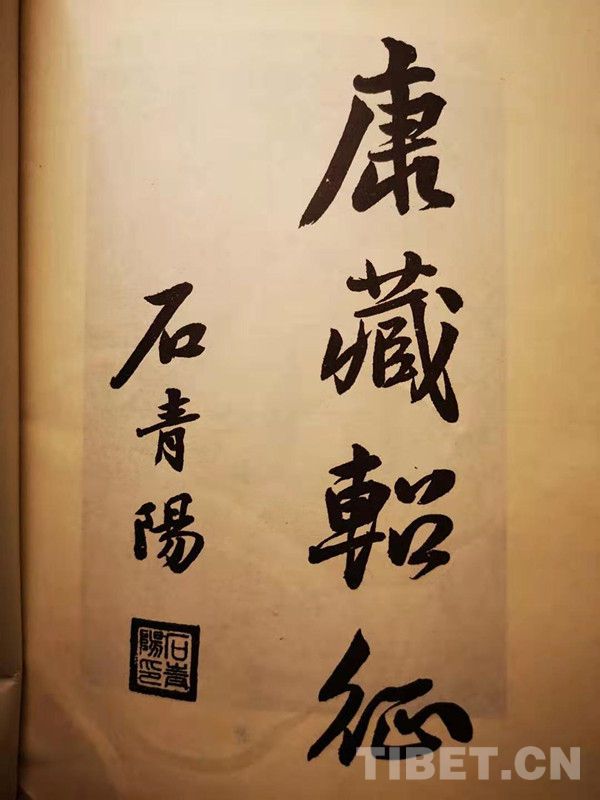 康藏軺征
石青陽
石青陽印
TIBET.CN